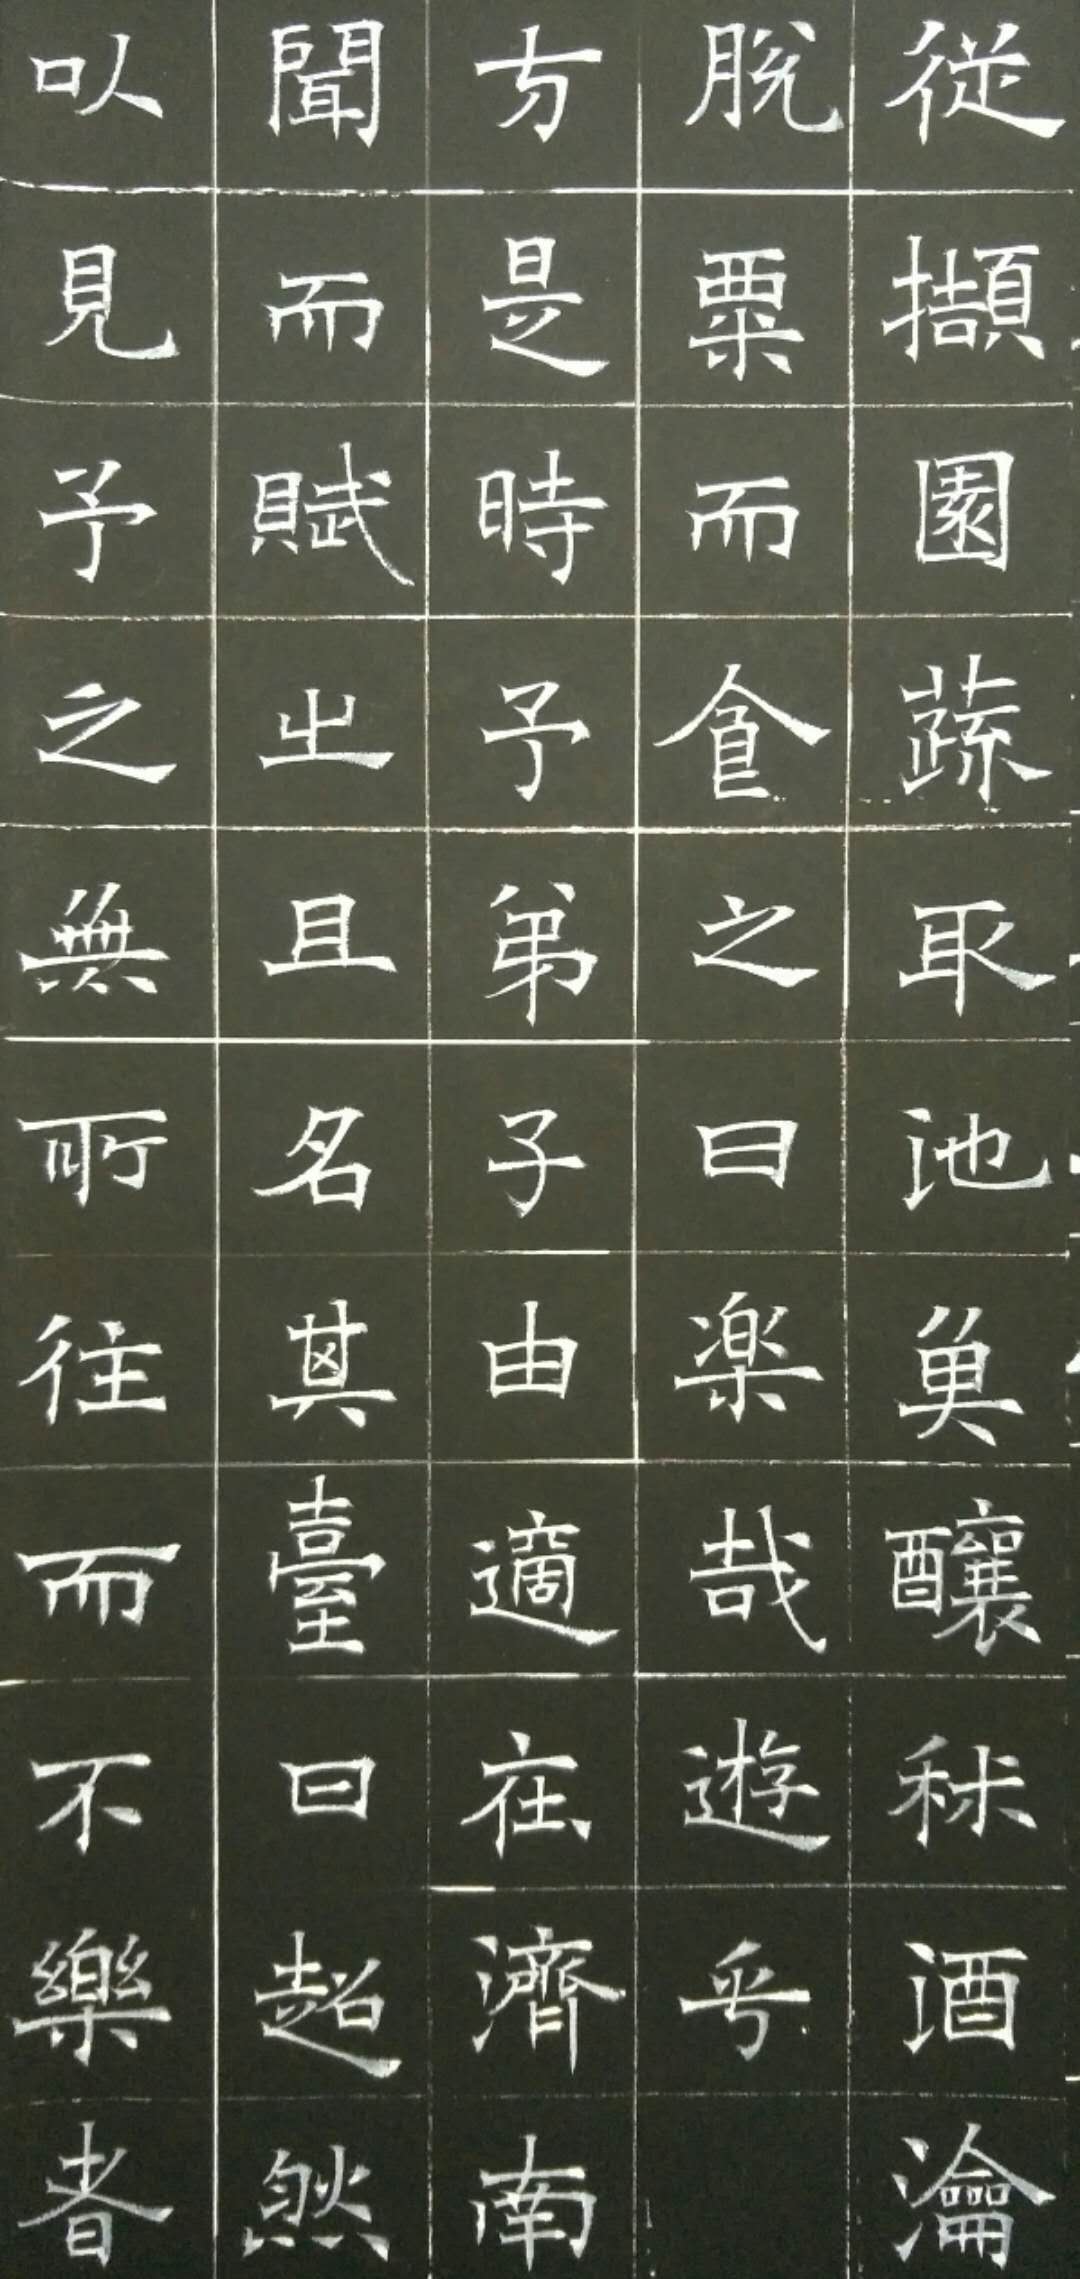 從擷園蔬取池魚釀秫酒瀹
脫粟而食之曰樂哉遊乎
方是時予弟子由適在濟南
聞而賦之且名其臺曰超然
以見予之無所往而不樂者